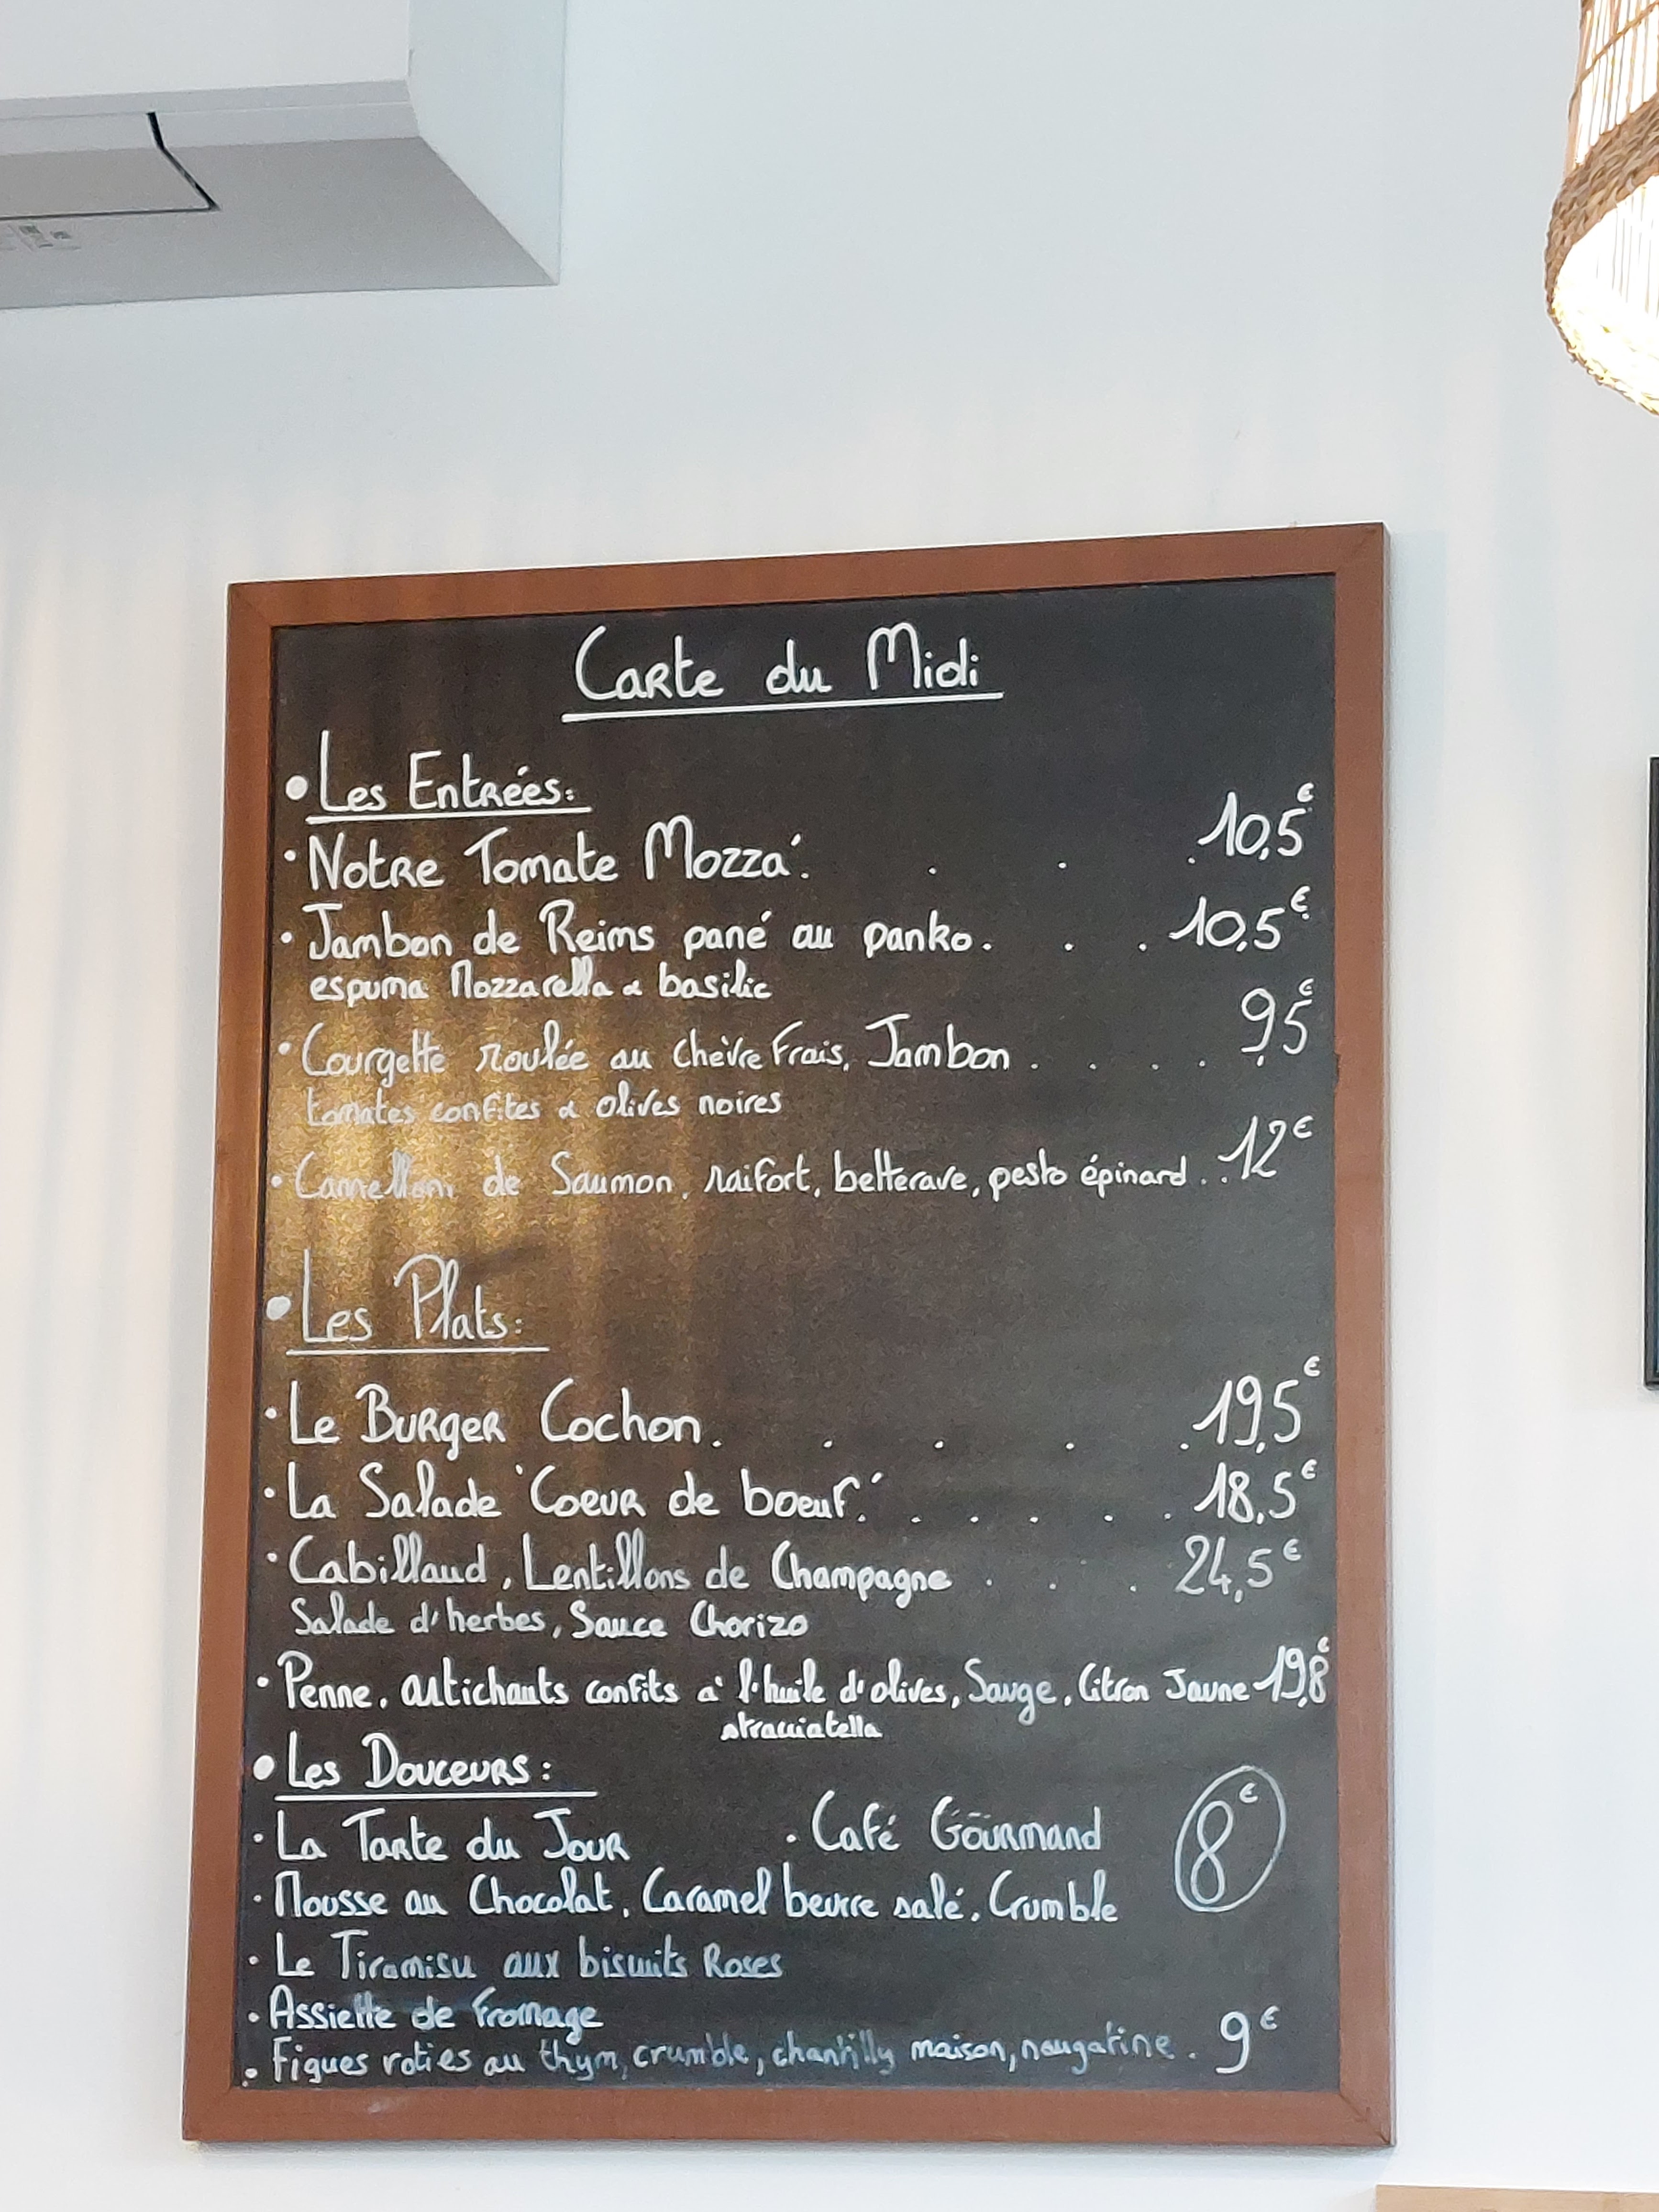 Carte du Midi
• Les Entrées:
• Notre Tomate Mozza'. . . . 10,5€
• Jambon de Reims pané au panko. . . 10,5€
espuma Mozzarella & basilic
• Courgette roulée au Chèvre Frais, Jambon . . . . 9,5€
tomates confites & olives noires
• Cannelloni de Saumon, raifort, betterave, pesto épinard . . 12€
• Les Plats:
• Le Burger Cochon. . . . . 19,5€
• La Salade 'Coeur de boeuf'. . . . . . 18,5€
• Cabillaud, Lentillons de Champagne . . . 24,5€
Salade d'herbes, Sauce Chorizo
• Penne, artichauts confits à l'huile d'olives, Sauge, Citron Jaune 19,8€
stracciatella
• Les Douceurs:
• La Tarte du Jour • Café Gourmand 8€
• Mousse au Chocolat, Caramel beurre salé, Crumble
• Le Tiramisu aux biscuits Roses
• Assiette de fromage
• Figues roties au thym, crumble, chantilly maison, nougatine . 9€